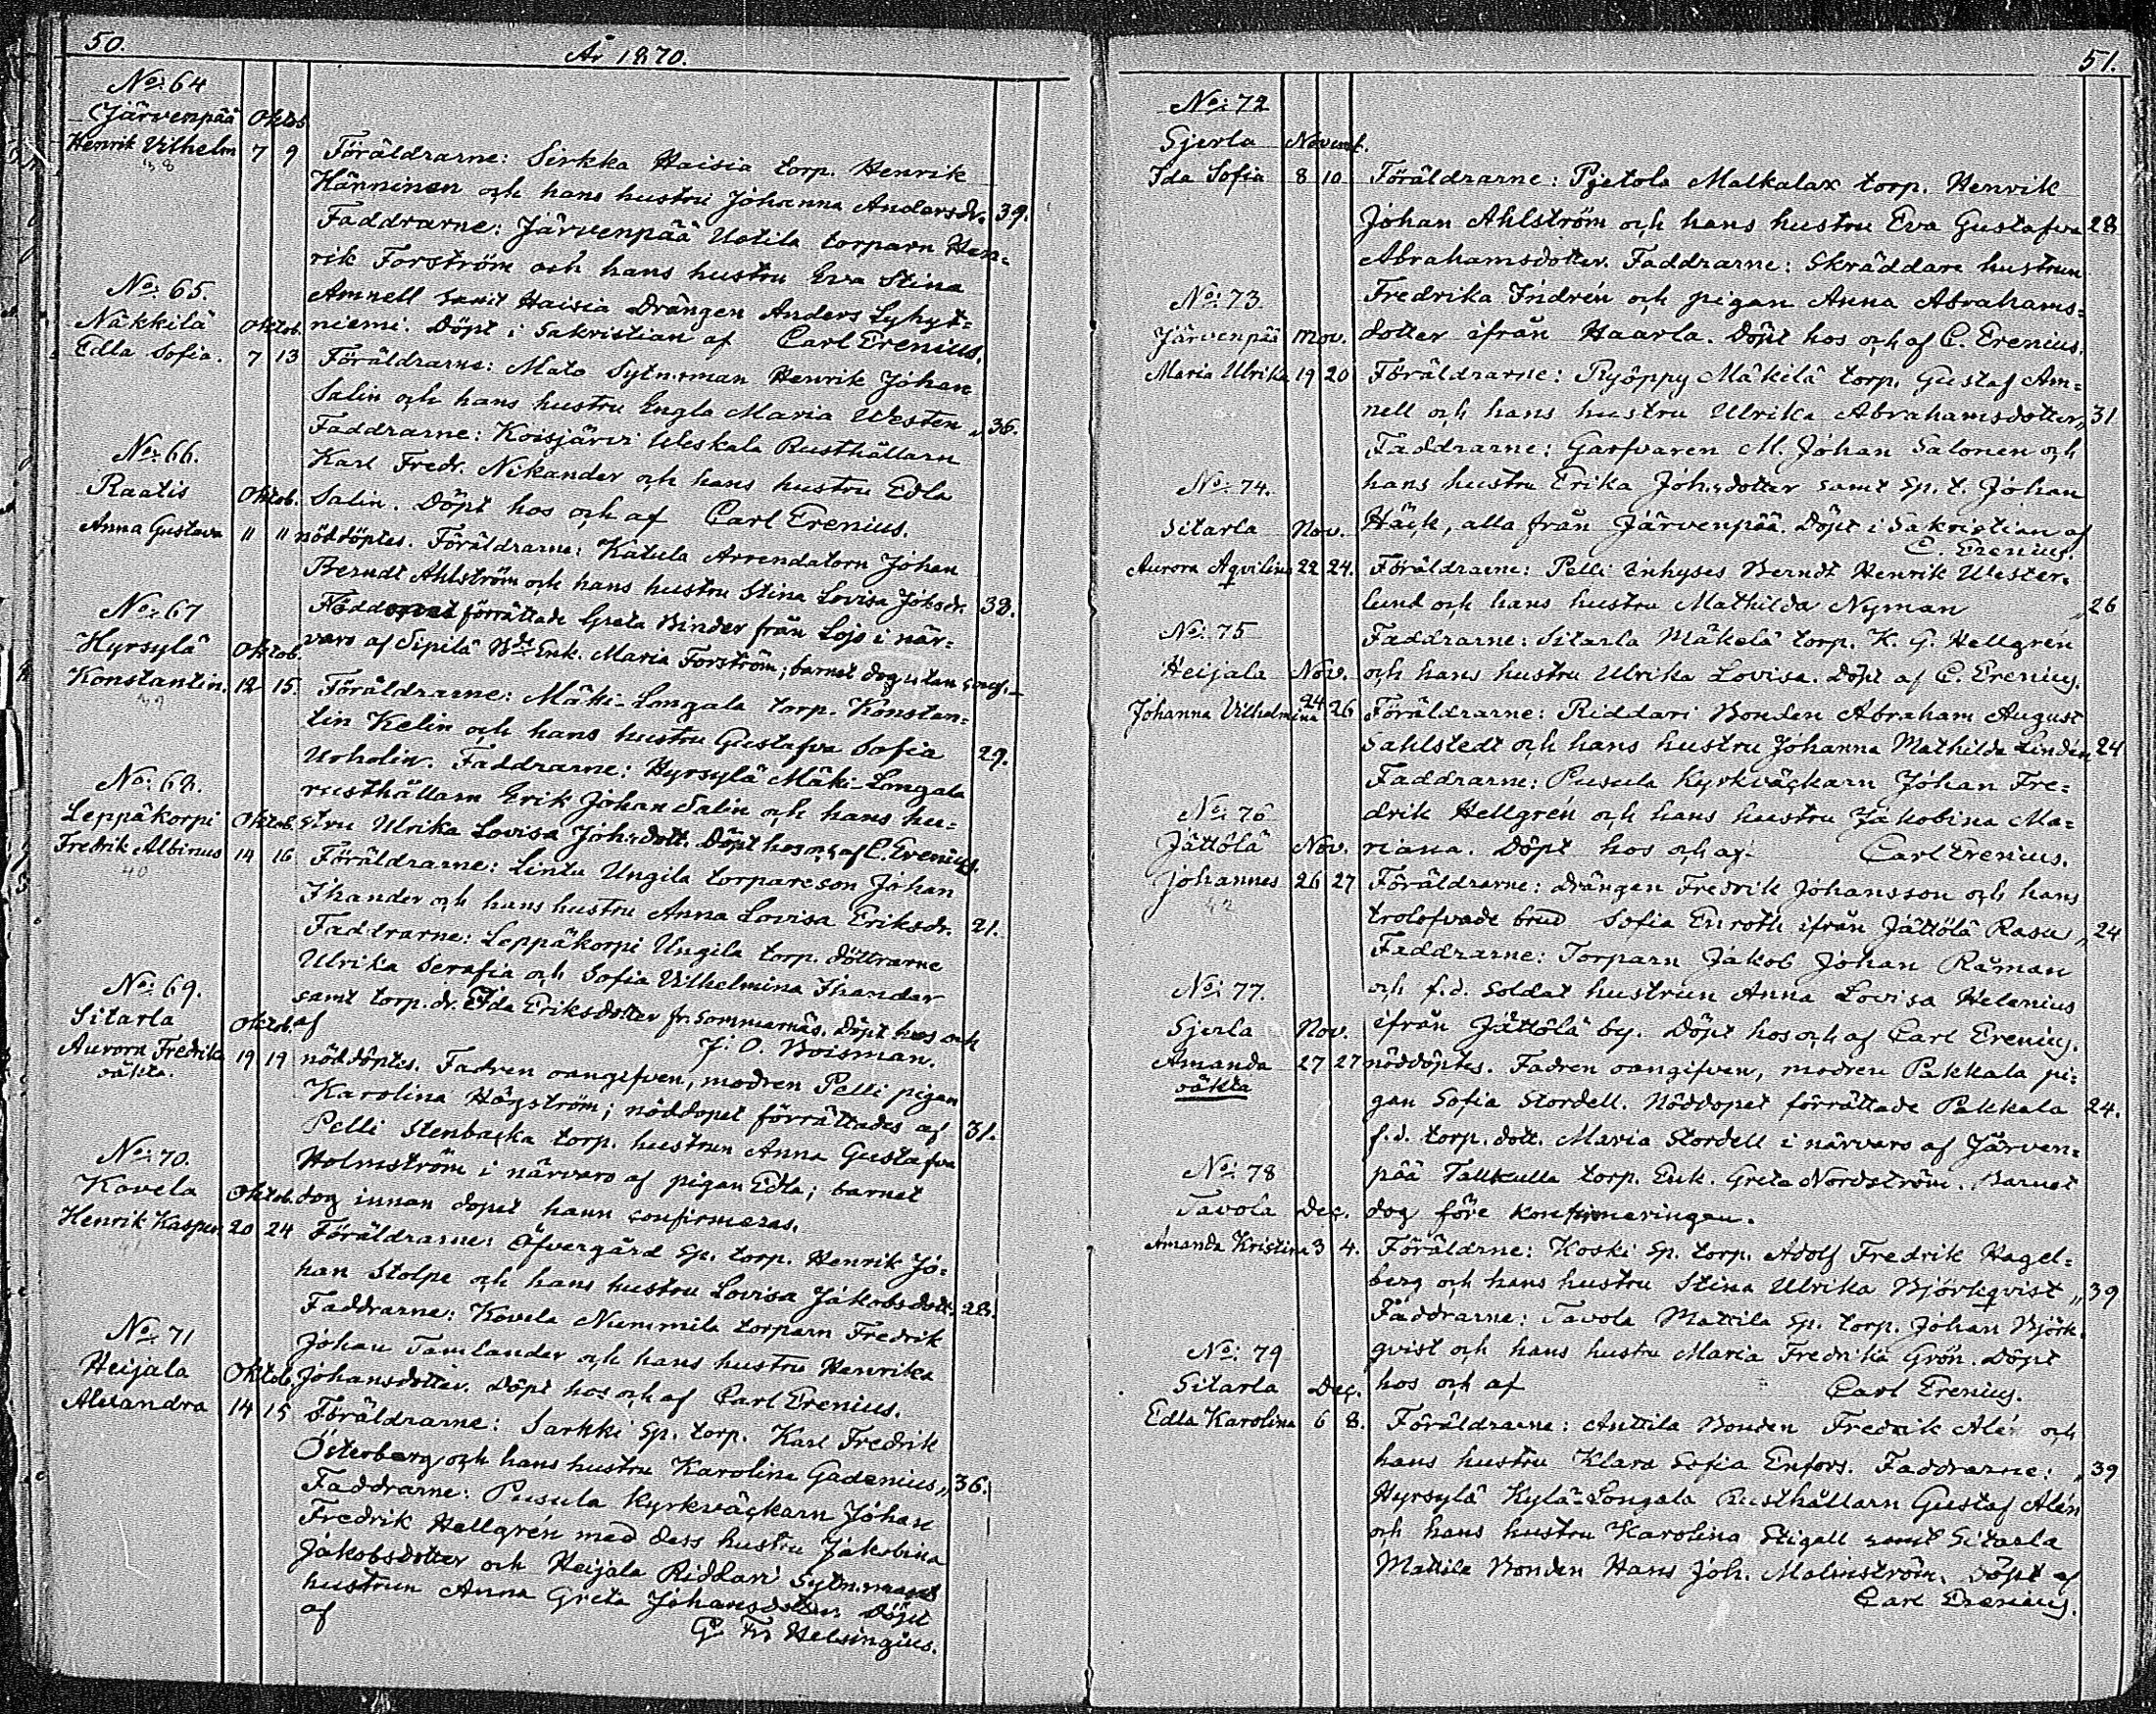 50.
År 1870.
No: 64
Järvenpää Oktob.
Henrik Vilhelm 7 9 Föräldrarne: Sirkka Haisia torp. Henrik
38
Hänninen och hans hustru Johanna Andersdr. 39.
Faddrarne: Järvenpää Uotila torparn Hen=
rik Forström och hans hustru Eva Stina
Amnell samt Haisia Drängen Anders Lyhyt=
No: 65.
niemi. Döpt i Sakristian af Carl Erenius.
Näkkilä Oktob.
Edla Sofia. 7 13 Föräldrarne: Mato Sytn:man Henrik Johan
Salin och hans hustru Engla Maria Westen „ 36.
Faddrarne: Koisjärvi Uleskala Rusthållarn
No: 66.
Karl Fredr. Nikander och hans hustru Edla
Raatis Oktob. Salin. Döpt hos och af Carl Erenius.
Anna Gustava 11 11 nöddöptes. Föräldrarne: Katula Arrendatorn Johan
Berndt Ahlström och hans hustru Stina Lovisa Johsdr. 38.
Nöddopet förrättade Greta Binder från Lojo i när=
No: 67
varo af Sipilä Bde Enk. Maria Forström; barnet dog utan conf.
Hyrsylä Oktob.
Konstantin. 12 15. Föräldrarne: Mäki-Longala torp. Konstan=
39
tin Kelin och hans hustru Gustafva Sofia 29.
Urholin. Faddrarne: Hyrsylä Mäki-Longala
rusthållarn Erik Johan Salin och hans hu=
No: 68.
stru Ulrika Lovisa Joh:dott. Döpt hos och af C. Erenius.
Leppäkorpi Oktob.
Fredrik Albinus 14 16 Föräldrarne: Lintu Ungila torpareson Johan
40
Ihander och hans hustru Anna Lovisa Eriksdr. 21.
Faddrarne: Leppäkorpi Ungila torp. döttrarne
Ulrika Serafia och Sofia Vilhelmina Ihander
No: 69.
samt torp. dr. Ida Eriksdotter fr. Sommarnäs. Döpt hos och
Sitarla Oktob. af J. O. Boisman.
Aurora Fredrika 19 19 nöddöptes. Fadren oangifven, modren Pelli pigan
oäkta.
Karolina Högström; nöddopet förrättades af 31.
Pelli Stenbacka torp. hustrun Anna Gustafva
No: 70.
Holmström i närvaro af pigan Edla; barnet
Kovela Oktob. dog innan dopet hann confirmeras.
Henrik Kasper 20 24 Föräldrarne: Öfvergård Sp. torp. Henrik Jo=
41
han Stolpe och hans hustru Lovisa Jakobsdott. 28.
Faddrarne: Kovela Nummila torparn Fredrik
No: 71
Johan Tamlander och hans hustru Henrika
Heijala Oktob. Johansdotter. Döpt hos och af Carl Erenius.
Alexandra 14 15 Föräldrarne: Sarkki Sp. torp. Karl Fredrik
Österberg och hans hustru Karolina Gadenius „ 36.
Faddrarne: Pusula Kyrkväckarn Johan
Fredrik Hellgrén med dess hustru Jakobina
Jakobsdotter och Heijala Riddari Sytn.mans
hustrun Anna Greta Johansdotter Döpt
af G. Fr. Helsingius.
51.
No: 72
Gjerla Novemb.
Ida Sofia 8 10 Föräldrarne: Pjetola Malkalax torp. Henrik
Johan Ahlström och hans hustru Eva Gustafva 28
Abrahamsdotter. Faddrarne: Skräddare hustrun
No: 73
Fredrika Indrén och pigan Anna Abrahams=
Järvenpää Nov. dotter ifrån Haarla. Döpt hos och af C. Erenius.
Maria Ulrika 19 20 Föräldrarne: Ryöppy Mäkilä torp. Gustaf Am=
nell och hans hustru Ulrika Abrahamsdotter „ 31
Faddrarne: Garfvaren M. Johan Salonen och
No: 74.
hans hustru Erika Joh:dotter samt Sp. t. Johan
Sitarla Nov. Häck, alla från Järvenpää. Döpt i Sakristian af
C. Erenius.
Aurora Aqvilina 22 24. Föräldrarne: Pelli Inhyses Berndt Henrik Wester=
lund och hans hustru Mathilda Nyman „ 26
No: 75
Faddrarne: Sitarla Mäkelä torp. K. G. Hellgrén
Heijala Nov. och hans hustru Ulrika Lovisa. Döpt af C. Erenius.
Johanna Vilhelmina 24 26 Föräldrarne: Riddari Bonden Abraham August
Sahlstedt och hans hustru Johanna Mathilda Lindén 24
Faddrarne: Pusula Kyrkväckarn Johan Fre=
No: 76
drik Hellgrén och hans hustru Jakobina Ma=
Jättölä Nov. riana. Döpt hos och af Carl Erenius.
Johannes 26 27 Föräldrarne: Drängen Fredrik Johansson och hans
42
trolofvade brud Sofia Enroth ifrån Jättölä Rasu „ 24
Faddrarne: Torparn Jakob Johan Råman
No: 77.
och f.d. Soldat hustrun Anna Lovisa Helenius
Gjerla Nov. ifrån Jättölä by. Döpt hos och af Carl Erenius.
Amanda 27 27 nöddöptes. Fadren oangifven, modren Pakkala pi=
oäkta
gan Sofia Stordell. Nöddopet förrättade Pakkala 24.
f.d. torp. dott. Maria Stordell i närvaro af Järven=
No: 78
pää Tallkulla torp. Enk. Greta Nordström. Barnet
Tavola Dec. dog före konfirmeringen.
Amanda Kristina 3 4. Föräldrne: Koski Sp. torp. Adolf Fredrik Hagel=
berg och hans hustru Stina Ulrika Björkqvist „ 39
Faddrarne: Tavola Mattila Sp. torp. Johan Björk=
No: 79
qvist och hans hustru Maria Fredrika Grön. Döpt
Sitarla Dec. hos och af Carl Erenius.
Edla Karolina 6 8. Föräldrarne: Anttila Bonden Fredrik Alén och
hans hustru Klara Sofia Enfors. Faddrarne: „ 39
Hyrsylä Kylä-Longala Rusthållarn Gustaf Alén
och hans hustru Karolina Stigell samt Sitarla
Mattila Bonden Hans Joh. Malmström. Döpt af
Carl Erenius.